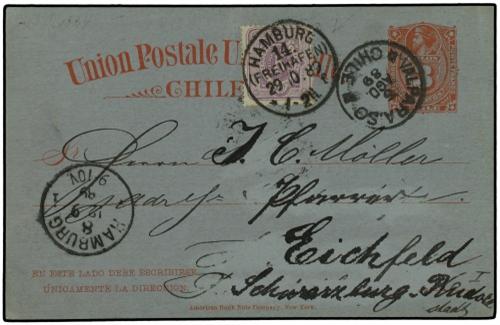 Union Postale U
CHILE
HAMBURG
14
(FREIHAFEN)
1-2N
VALPARAISO
CHILE
89
Sr
Herrn J. C. Möller
Pfarrer
Eichfeld
Schwarzburg-Rudol
stadt
HAMBURG
1
8
9-10V
EN ESTE LADO DEBE ESCRIBIRSE
ÚNICAMENTE LA DIRECCION.
American Bank Note Company, New York.